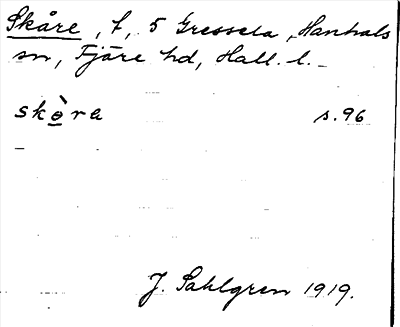 Skåre, t, 5 Gressela, Hanhals
sn, Fjäre hd, Hall. l.
skò̤ra s. 96
J. Sahlgren 1919.